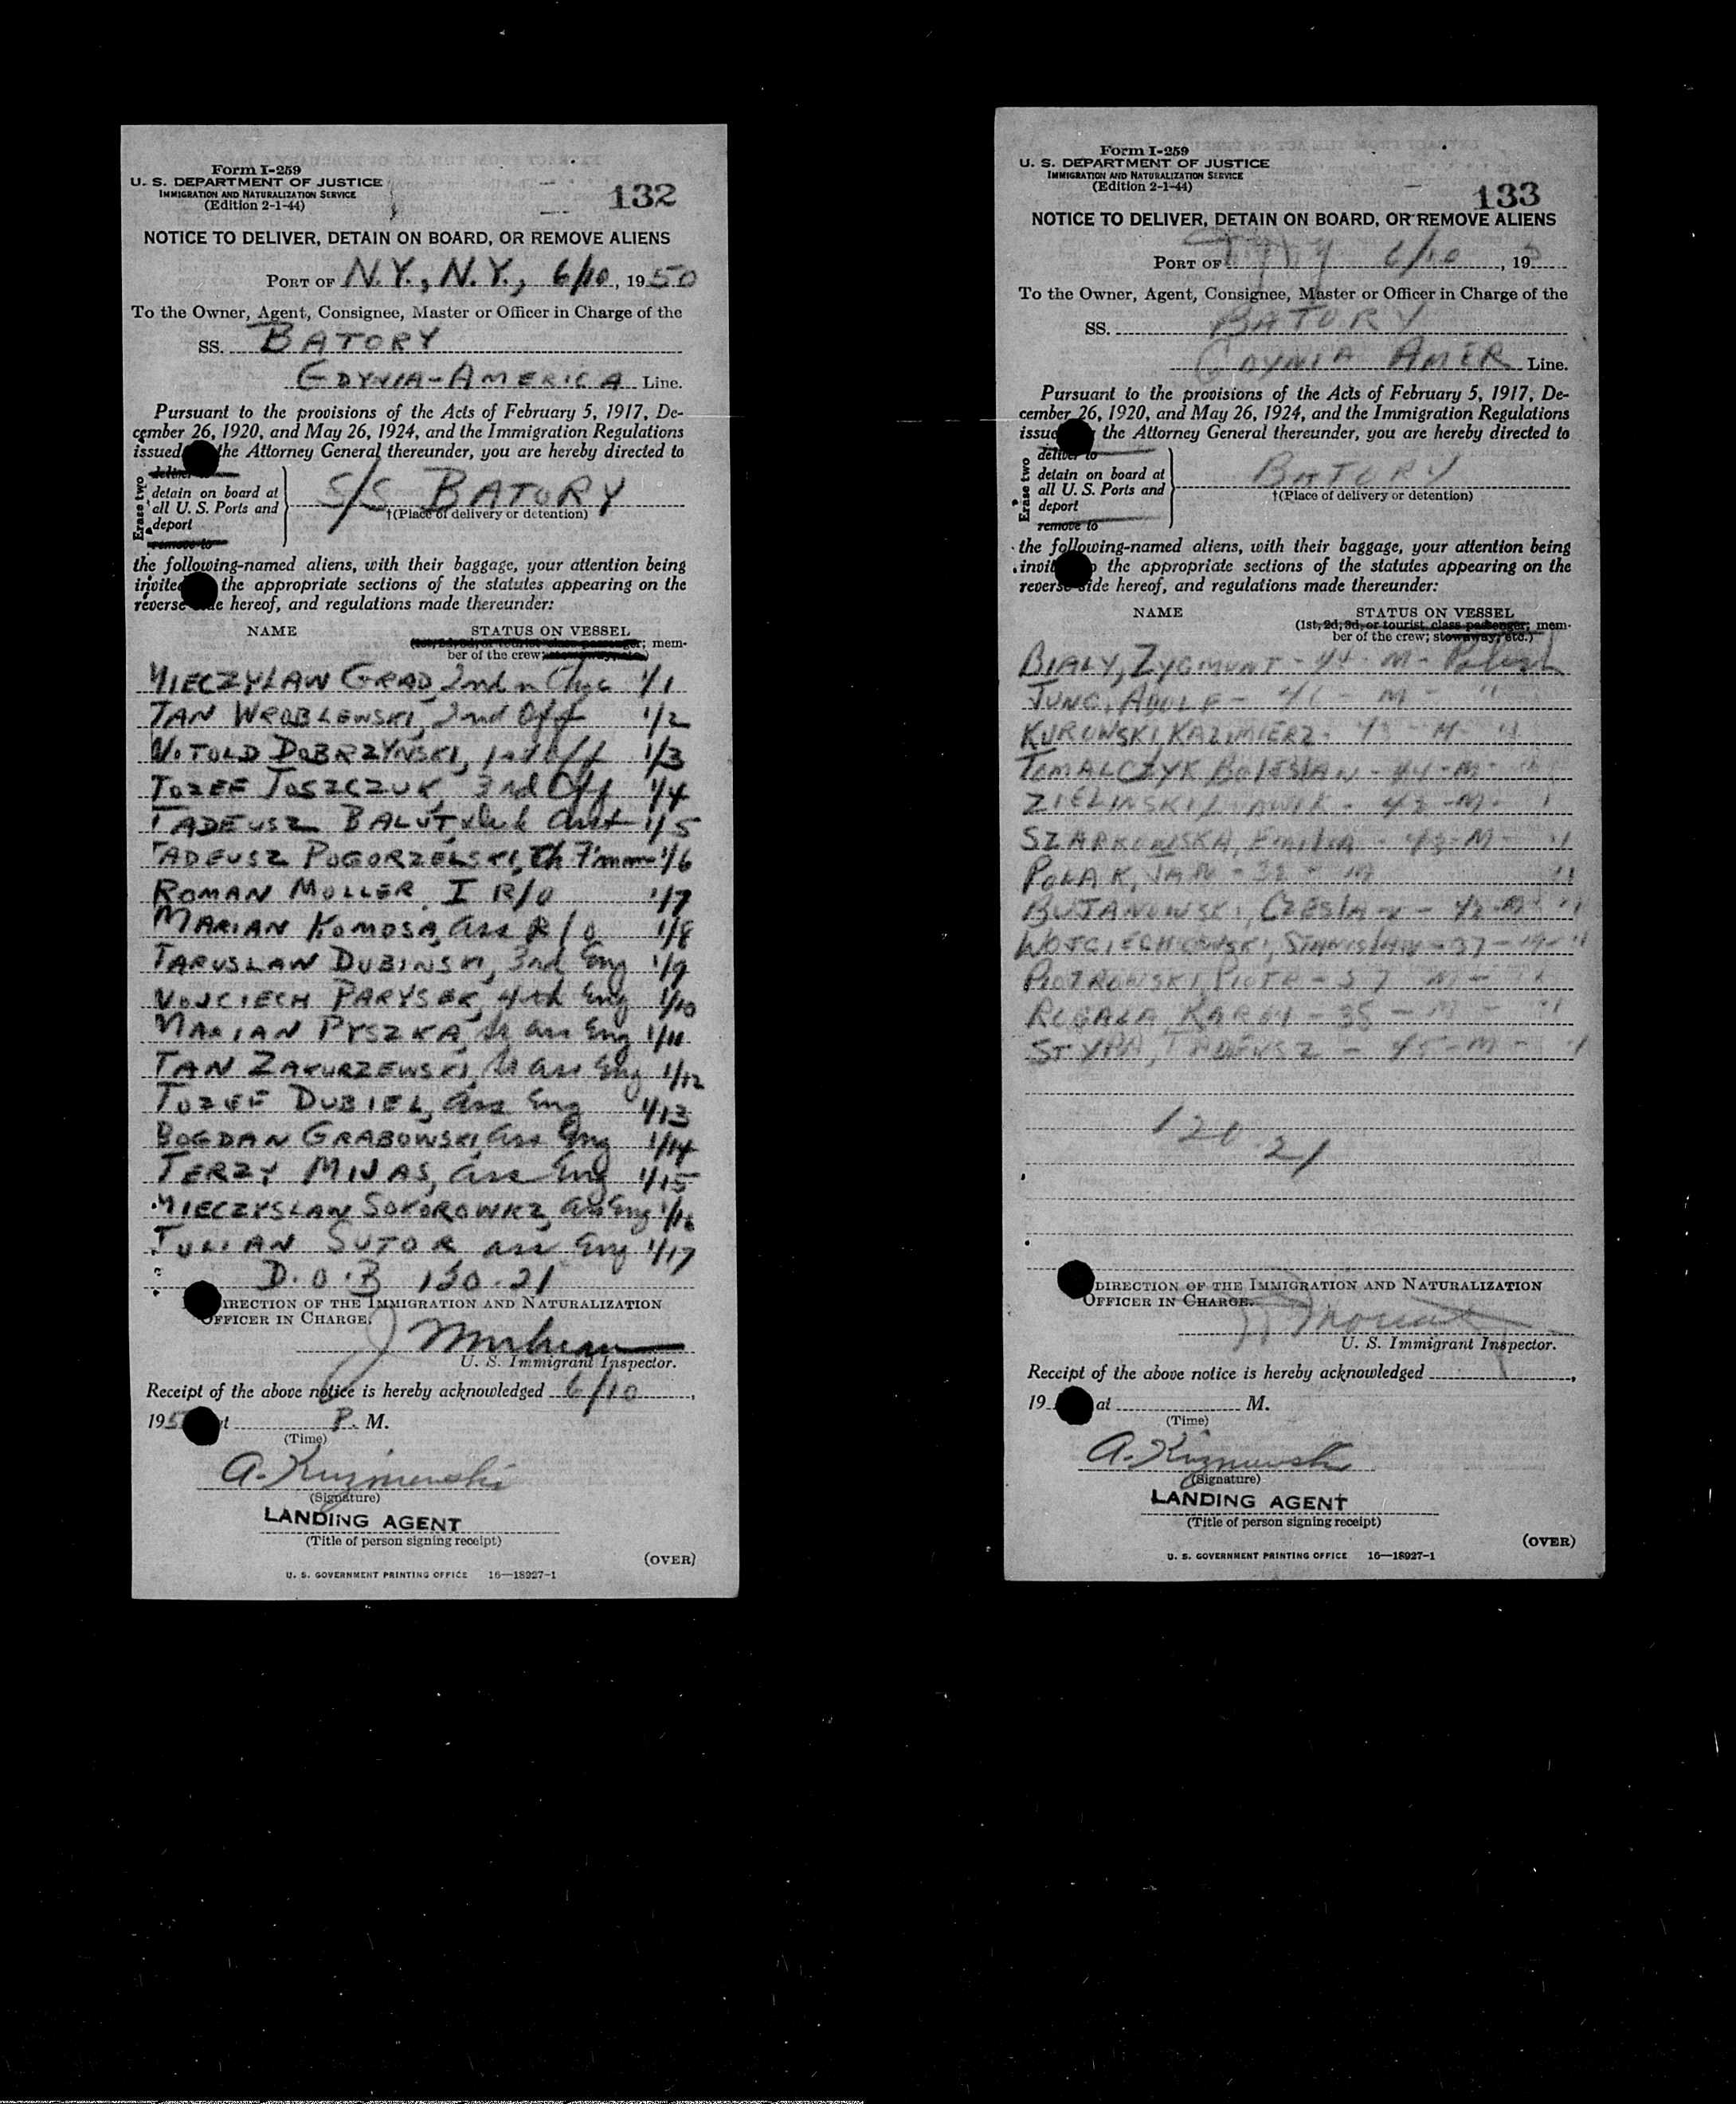 Form I-259
U. S. DEPARTMENT OF JUSTICE
IMMIGRATION AND NATURALIZATION SERVICE
(Edition 2-1-44)
132
NOTICE TO DELIVER, DETAIN ON BOARD, OR REMOVE ALIENS
PORT OF N.Y., N.Y., 6/10, 1950
To the Owner, Agent, Consignee, Master or Officer in Charge of the
SS. BATORY
GDYNIA-AMERICA Line.
Pursuant to the provisions of the Acts of February 5, 1917, De-
cember 26, 1920, and May 26, 1924, and the Immigration Regulations
issued the Attorney General thereunder, you are hereby directed to
Erase two
deliver to
detain on board at
all U. S. Ports and
deport
remove to
S/S BATORY
†(Place of delivery or detention)
the following-named aliens, with their baggage, your attention being
invited the appropriate sections of the statutes appearing on the
reverse side hereof, and regulations made thereunder:
NAME STATUS ON VESSEL
(1st, 2d, 3d, or tourist class passenger; mem-
ber of the crew; stowaway, etc.)
MIECZYLAW GRAD, 2nd 1/1
JAN WROBLEWSKI, 2nd Off 1/2
WITOLD DOBRZYNSKI, Off 1/3
JOZEF JOSZCZUK, 3nd Off 1/4
TADEUSZ BALUT, 1/5
TADEUSZ POGORZELSKI, 1/6
ROMAN MOLLER, I R/O 1/7
MARIAN KOMOSA, ass R/O 1/8
JARUSLAW DUBINSKI, 3nd Eng 1/9
WOJCIECH PARYSEK, 4th Eng 1/10
MARIAN PYSZKA, ass Eng 1/11
JAN ZAKURZEWSKI, ass Eng 1/12
JOZEF DUBIEL, ass Eng 1/13
BOGDAN GRABOWSKI, ass Eng 1/14
JERZY MIJAS, ass Eng 1/15
MIECZYSLAW ass Eng 1/16
JULIAN SUTOR ass Eng 1/17
D.O.B 120.21
DIRECTION OF THE IMMIGRATION AND NATURALIZATION
OFFICER IN CHARGE.
U. S. Immigrant Inspector.
Receipt of the above notice is hereby acknowledged 6/10,
195 at P. M.
(Time)
A. Kuzniewski
(Signature)
LANDING AGENT
(Title of person signing receipt)
(OVER)
U. S. GOVERNMENT PRINTING OFFICE 16—18927-1
Form I-259
U. S. DEPARTMENT OF JUSTICE
IMMIGRATION AND NATURALIZATION SERVICE
(Edition 2-1-44)
133
NOTICE TO DELIVER, DETAIN ON BOARD, OR REMOVE ALIENS
PORT OF NY 6/10, 195
To the Owner, Agent, Consignee, Master or Officer in Charge of the
SS. BATORY
GDYNIA AMER Line.
Pursuant to the provisions of the Acts of February 5, 1917, De-
cember 26, 1920, and May 26, 1924, and the Immigration Regulations
issued the Attorney General thereunder, you are hereby directed to
Erase two
deliver to
detain on board at
all U. S. Ports and
deport
remove to
BATORY
†(Place of delivery or detention)
the following-named aliens, with their baggage, your attention being
invited the appropriate sections of the statutes appearing on the
reverse side hereof, and regulations made thereunder:
NAME STATUS ON VESSEL
(1st, 2d, 3d, or tourist class passenger; mem-
ber of the crew; stowaway, etc.)
BIALY, ZYGMUNT - 44 - M - Polish
JUNG, ADOLF - 46 - M - "
KUROWSKI, KAZIMIERZ - 43 - M - "
TOMALCZYK BOLESLAW - 44 - M - "
ZIELINSKI, - 48 - M - "
SZARKOWSKA, EMILIA - 43 - M - "
POLAK, JAN - 32 - M "
BUJANOWSKI, CZESLAW - 42 - M - "
WOJCIECHOWSKI, STANISLAW - 37 - M - "
PIOTROWSKI, PIOTR - 57 M - "
ROGALA, KAROL - 35 - M - "
STYPA, TADEUSZ - 45 - M - "
120.21
DIRECTION OF THE IMMIGRATION AND NATURALIZATION
OFFICER IN CHARGE.
U. S. Immigrant Inspector.
Receipt of the above notice is hereby acknowledged ,
19 at M.
(Time)
A. Kuzniewski
(Signature)
LANDING AGENT
(Title of person signing receipt)
(OVER)
U. S. GOVERNMENT PRINTING OFFICE 16—18927-1